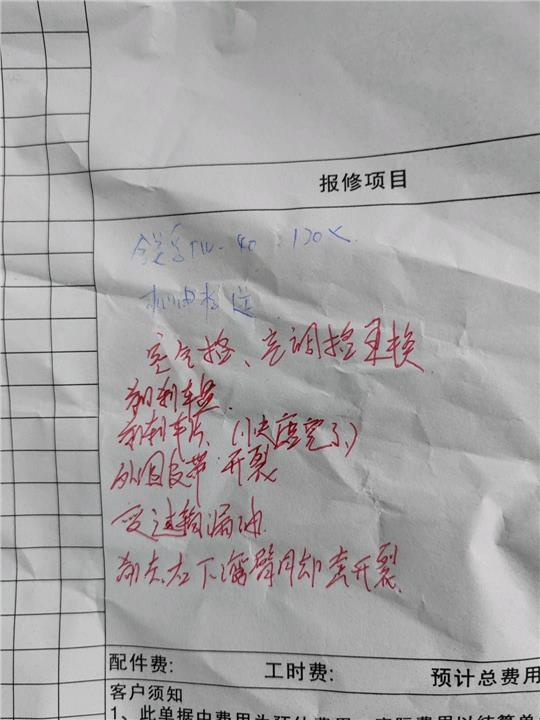 报修项目
5W-40 120×
机油格 送
空气格、空调格更换
前刹车盘.
前刹车片.(快磨完了)
外围皮带 开裂
变速箱漏油.
前左右下摆臂胶套开裂.
配件费: 工时费: 预计总费用
客户须知
1、此单据中费用为预估费用